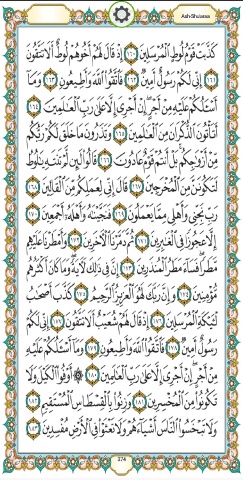 Ash-Shu'araa
كَذَّبَتْ قَوْمُ لُوطٍ ٱلْمُرْسَلِينَ ١٦٠ إِذْ قَالَ لَهُمْ أَخُوهُمْ لُوطٌ أَلَا تَتَّقُونَ
١٦١ إِنِّى لَكُمْ رَسُولٌ أَمِينٌ ١٦٢ فَٱتَّقُوا۟ ٱللَّهَ وَأَطِيعُونِ ١٦٣ وَمَآ
أَسْـَٔلُكُمْ عَلَيْهِ مِنْ أَجْرٍ إِنْ أَجْرِىَ إِلَّا عَلَىٰ رَبِّ ٱلْعَـٰلَمِينَ ١٦٤
أَتَأْتُونَ ٱلذُّكْرَانَ مِنَ ٱلْعَـٰلَمِينَ ١٦٥ وَتَذَرُونَ مَا خَلَقَ لَكُمْ رَبُّكُم
مِّنْ أَزْوَٰجِكُم بَلْ أَنتُمْ قَوْمٌ عَادُونَ ١٦٦ قَالُوا۟ لَئِن لَّمْ تَنتَهِ يَـٰلُوطُ
لَتَكُونَنَّ مِنَ ٱلْمُخْرَجِينَ ١٦٧ قَالَ إِنِّى لِعَمَلِكُم مِّنَ ٱلْقَالِينَ ١٦٨
رَبِّ نَجِّنِى وَأَهْلِى مِمَّا يَعْمَلُونَ ١٦٩ فَنَجَّيْنَـٰهُ وَأَهْلَهُۥٓ أَجْمَعِينَ ١٧٠
إِلَّا عَجُوزًا فِى ٱلْغَـٰبِرِينَ ١٧١ ثُمَّ دَمَّرْنَا ٱلْـَٔاخَرِينَ ١٧٢ وَأَمْطَرْنَا عَلَيْهِم
مَّطَرًا فَسَآءَ مَطَرُ ٱلْمُنذَرِينَ ١٧٣ إِنَّ فِى ذَٰلِكَ لَـَٔايَةً وَمَا كَانَ أَكْثَرُهُم
مُّؤْمِنِينَ ١٧٤ وَإِنَّ رَبَّكَ لَهُوَ ٱلْعَزِيزُ ٱلرَّحِيمُ ١٧٥ كَذَّبَ أَصْحَـٰبُ
لْـَٔيْكَةِ ٱلْمُرْسَلِينَ ١٧٦ إِذْ قَالَ لَهُمْ شُعَيْبٌ أَلَا تَتَّقُونَ ١٧٧ إِنِّى لَكُمْ
رَسُولٌ أَمِينٌ ١٧٨ فَٱتَّقُوا۟ ٱللَّهَ وَأَطِيعُونِ ١٧٩ وَمَآ أَسْـَٔلُكُمْ عَلَيْهِ
مِنْ أَجْرٍ إِنْ أَجْرِىَ إِلَّا عَلَىٰ رَبِّ ٱلْعَـٰلَمِينَ ١٨٠ ۞ أَوْفُوا۟ ٱلْكَيْلَ وَلَا
تَكُونُوا۟ مِنَ ٱلْمُخْسِرِينَ ١٨١ وَزِنُوا۟ بِٱلْقِسْطَاسِ ٱلْمُسْتَقِيمِ ١٨٢
وَلَا تَبْخَسُوا۟ ٱلنَّاسَ أَشْيَآءَهُمْ وَلَا تَعْثَوْا۟ فِى ٱلْأَرْضِ مُفْسِدِينَ ١٨٣
374